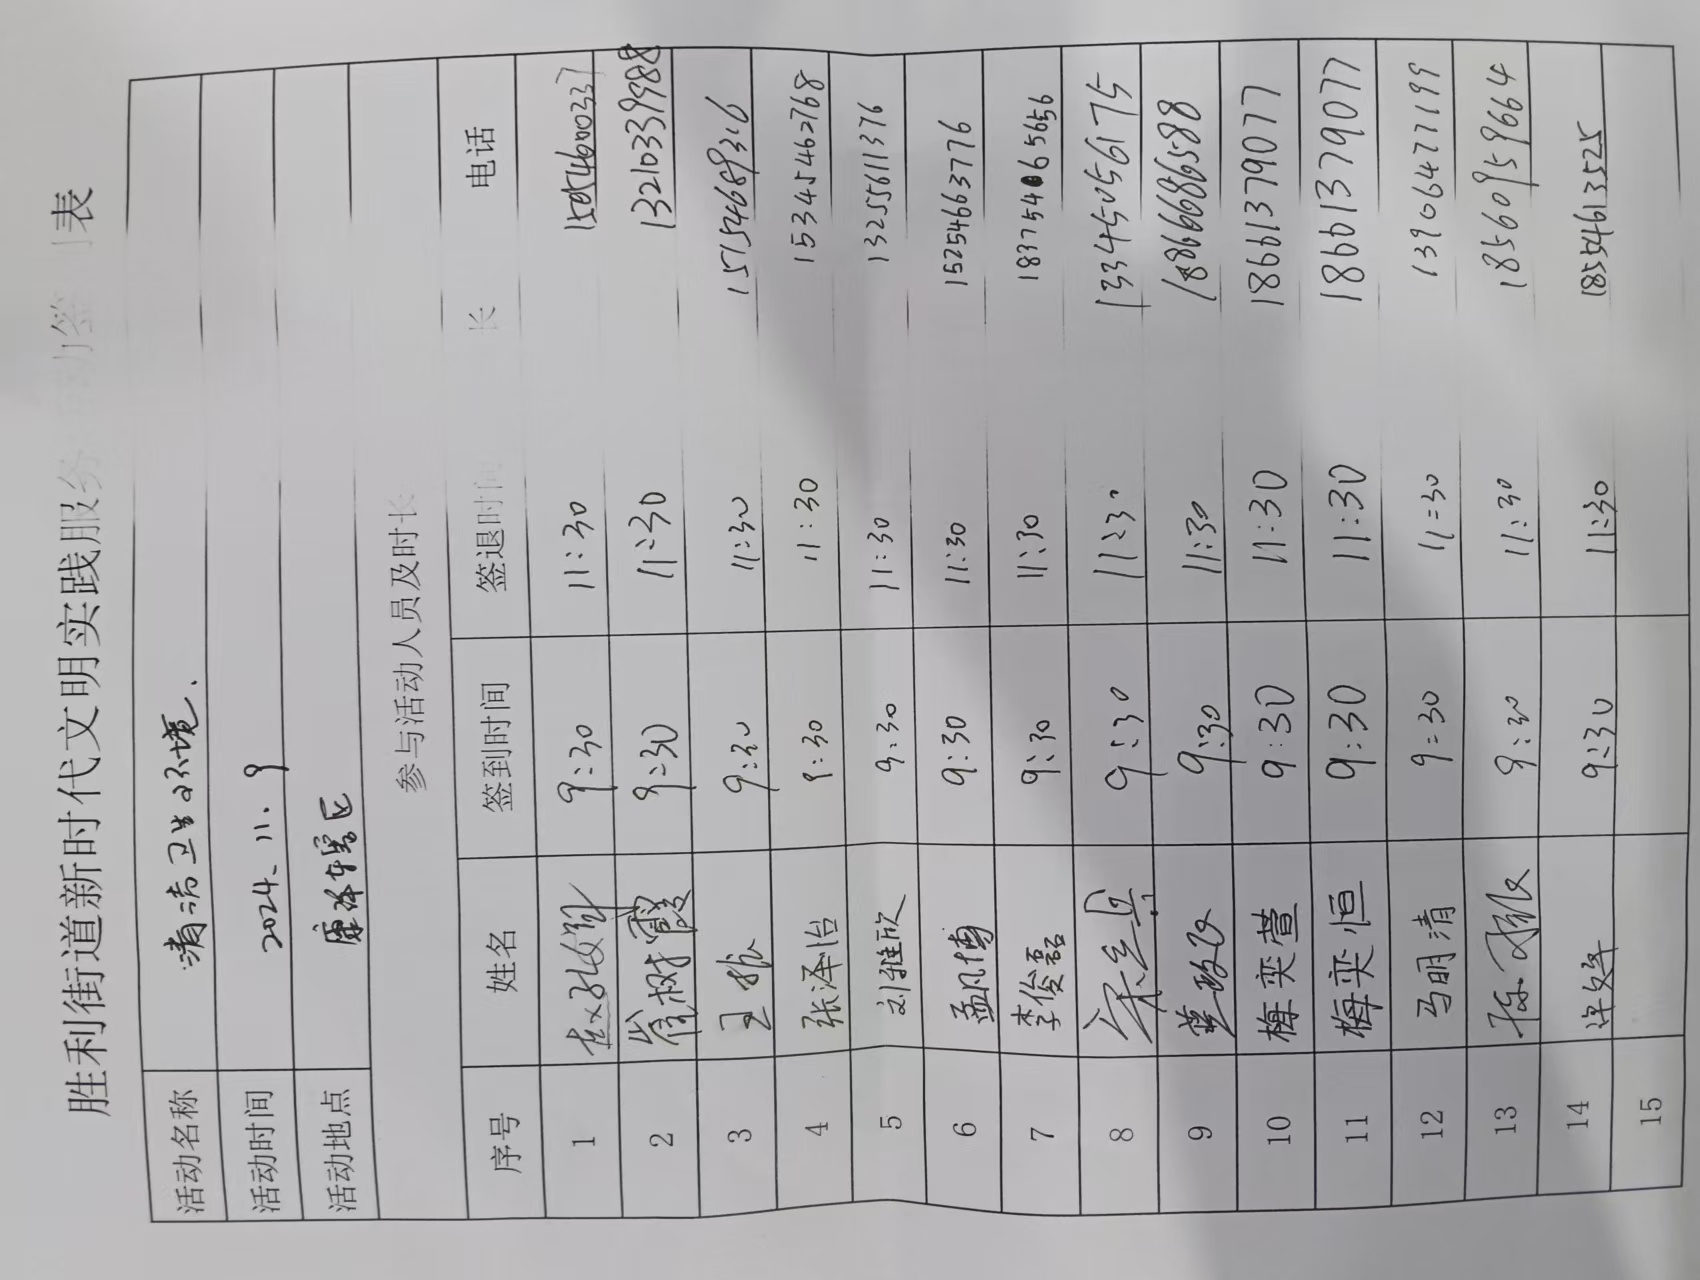 胜利街道新时代文明实践服务 动签 表
活动名称 清洁卫生环境.
活动时间 2024.11.9
活动地点 辖区
参与活动人员及时长
序号 姓名 签到时间 签退时间 长 电话
1 9:30 11:30
2 崔树霞 9:30 11:30 13210339988
3 9:30 11:30
4 张泽怡 9:30 11:30 15345462768
5 刘雅欣 9:30 11:30 13255611376
6 孟凡博 9:30 11:30 15254663776
7 李俊磊 9:30 11:30 18375406 5656
8 9:30 11:30 13345056175
9 9:30 11:30 18666686588
10 梅奕萱 9:30 11:30 18661379077
11 梅奕恒 9:30 11:30 18661379077
12 马明清 9:30 11:30 13906477199
13 9:30 11:30 18560959664
14 9:30 11:30 18554613525
15